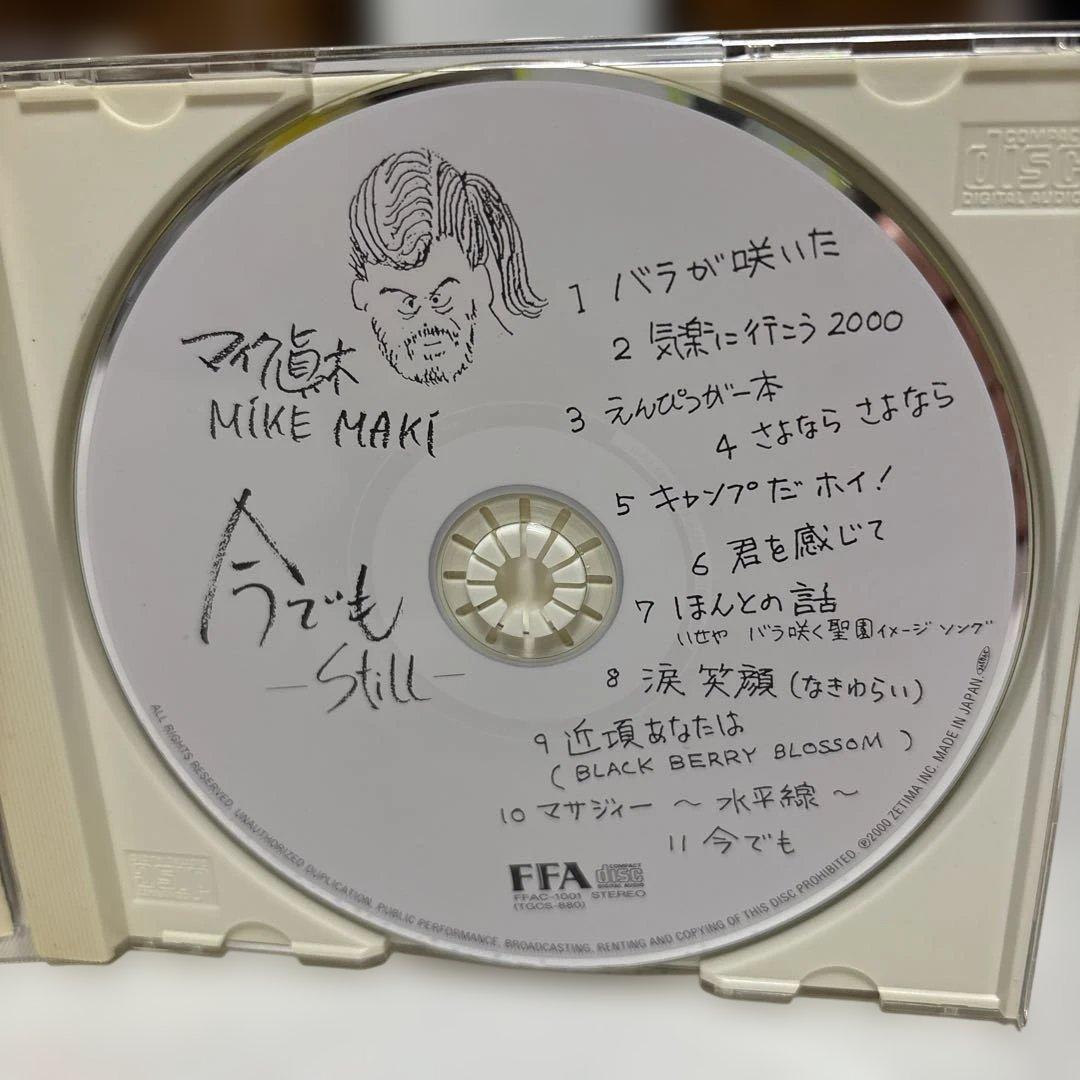 マイク眞木
MIKE MAKI
今でも
—Still—
1 バラが咲いた
2 気楽に行こう2000
3 えんぴつが一本
4 さよなら さよなら
5 キャンプだ ホイ!
6 君を感じて
7 ほんとの話
いせや バラ咲く聖園イメージ ソング
8 涙 笑顔(なきゆらい)
9 近頃あなたは
(BLACK BERRY BLOSSOM)
10 マサジィー 〜 水平線 〜
11 今でも
FFA COMPACT disc DIGITAL AUDIO
FFAC-1001 STEREO
(TGCS-880)
ALL RIGHTS RESERVED. UNAUTHORIZED DUPLICATION. PUBLIC PERFORMANCE. BROADCASTING. RENTING AND COPYING OF THIS DISC PROHIBITED. ℗2000 ZETIMA INC. MADE IN JAPAN.
COMPACT disc DIGITAL AUDIO